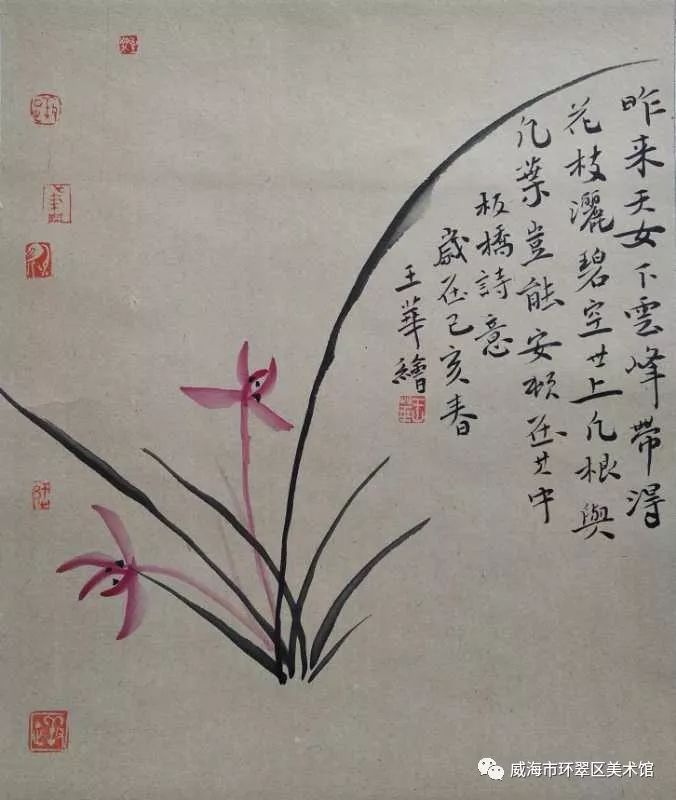 昨来天女下雲峰帶得
花枝灑碧空世上凡根與
凡葉豈能安頓在其中
板橋詩意
歲在己亥春
王華繪
威海市环翠区美术馆